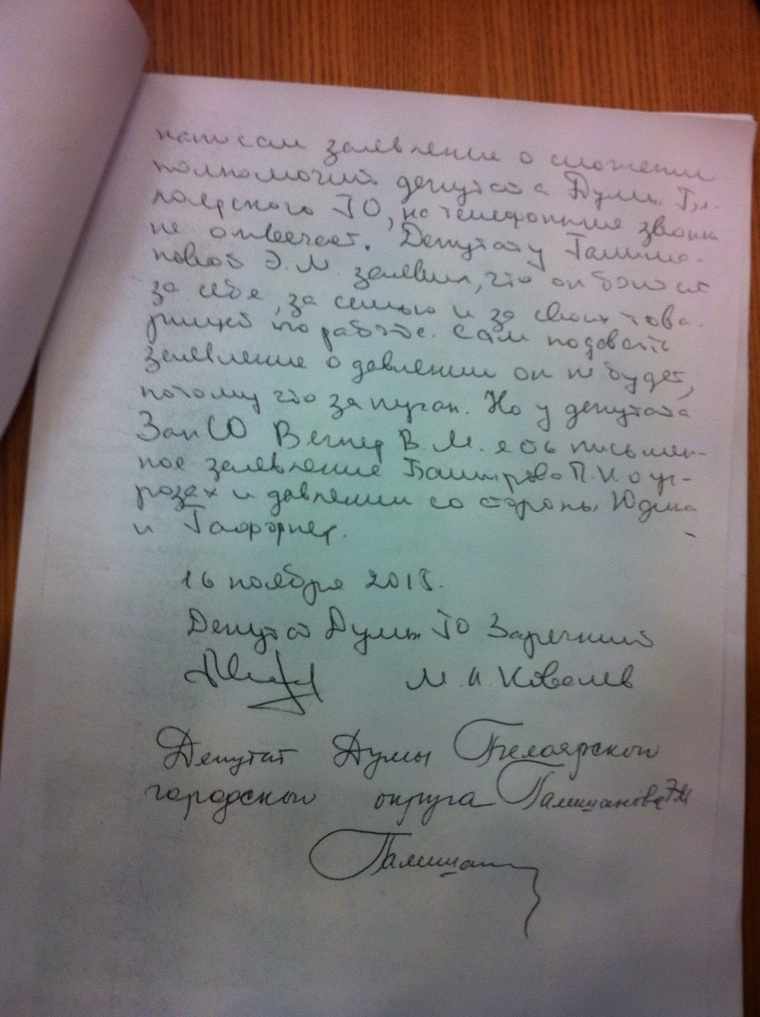 написал заявление о сложении
полномочий депутата Думы Бе-
лоярского ГО, на телефонные звонки
не отвечает. Депутату Галища-
новой Э.М. заявил, что он боится
за себя, за семью и за своих това-
рищей по работе. Сам подавать
заявление о давлении он не будет,
потому что запуган. Но у депутата
ЗакСО Вегнер В.М. есть письмен-
ное заявление П.К о уг-
розах и давлении со стороны Юдина
и
16 ноября 2015.
Депутат Думы ГО Заречный
М.И. Ковалев
Депутат Думы Белоярского
городского округа Галищанова ЭМ